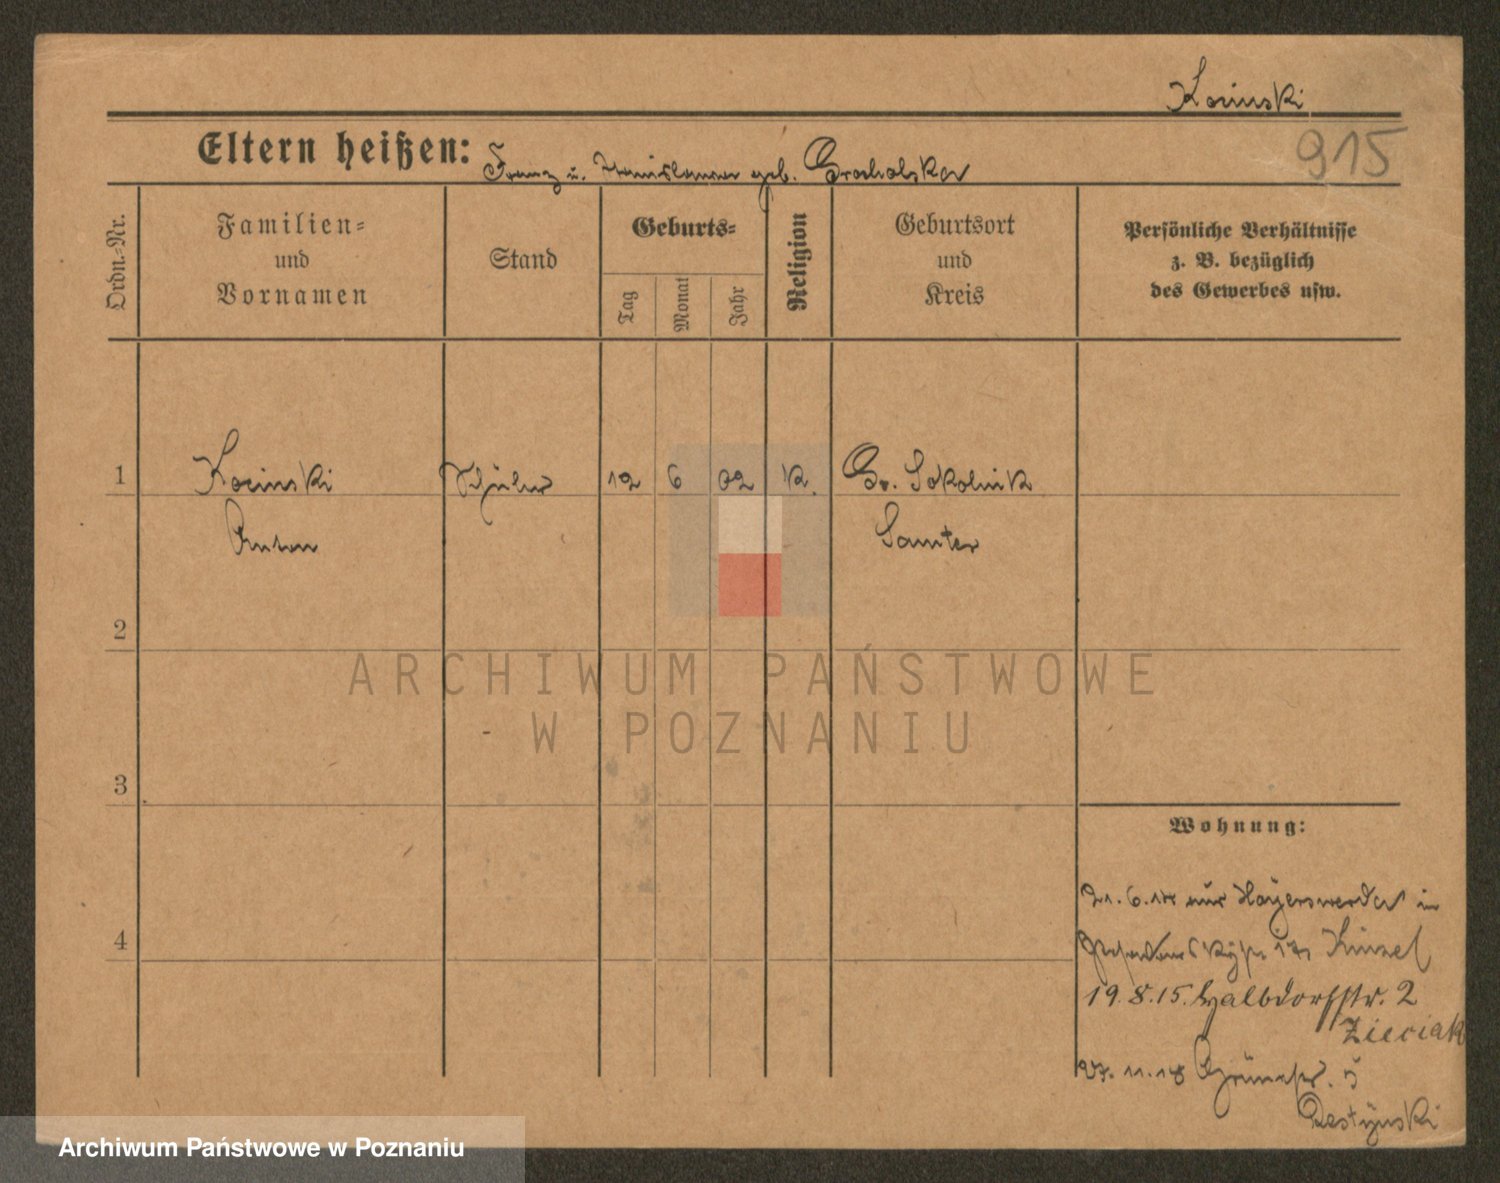 Kocinski
915
Eltern heißen: Franz u. Stanislawa geb. Grocholska
Ordn.-Nr.
Familien-
und
Vornamen
Stand
Geburts-
Tag
Monat
Jahr
Religion
Geburtsort
und
Kreis
Persönliche Verhältnisse
z. B. bezüglich
des Gewerbes usw.
1 Kocinski Schüler 12 6 02 k. Gr. Sokolnik
Anton Samter
2
ARCHIWUM PAŃSTWOWE
W POZNANIU
3
Wohnung:
21.6.14 aus Hoyerswerda in
4
17 Künzel
19.8.15. Halbdorfstr. 2
Zieciak
27.11.18 Grünestr. 5
Restynski
Archiwum Państwowe w Poznaniu